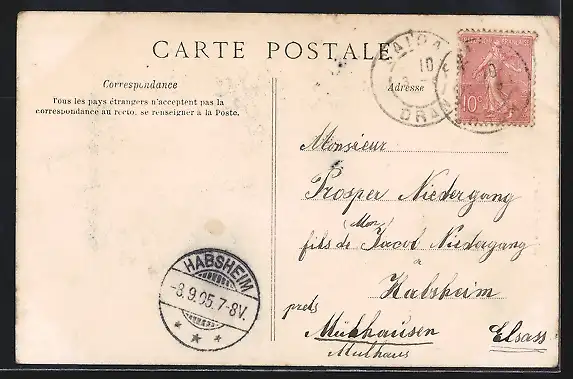 CARTE POSTALE
Correspondance
Tous les pays étrangers n'acceptent pas la
correspondance au recto, se renseigner à la Poste.
Adresse
10
ORAN
10
10c
Monsieur
Prosper Niedergang
(Mon)
fils de Jacob Niedergang
à
Habsheim
près
Mülhausen Elsass
Mulhaus
HABSHEIM
-8.9.05.7-8V.